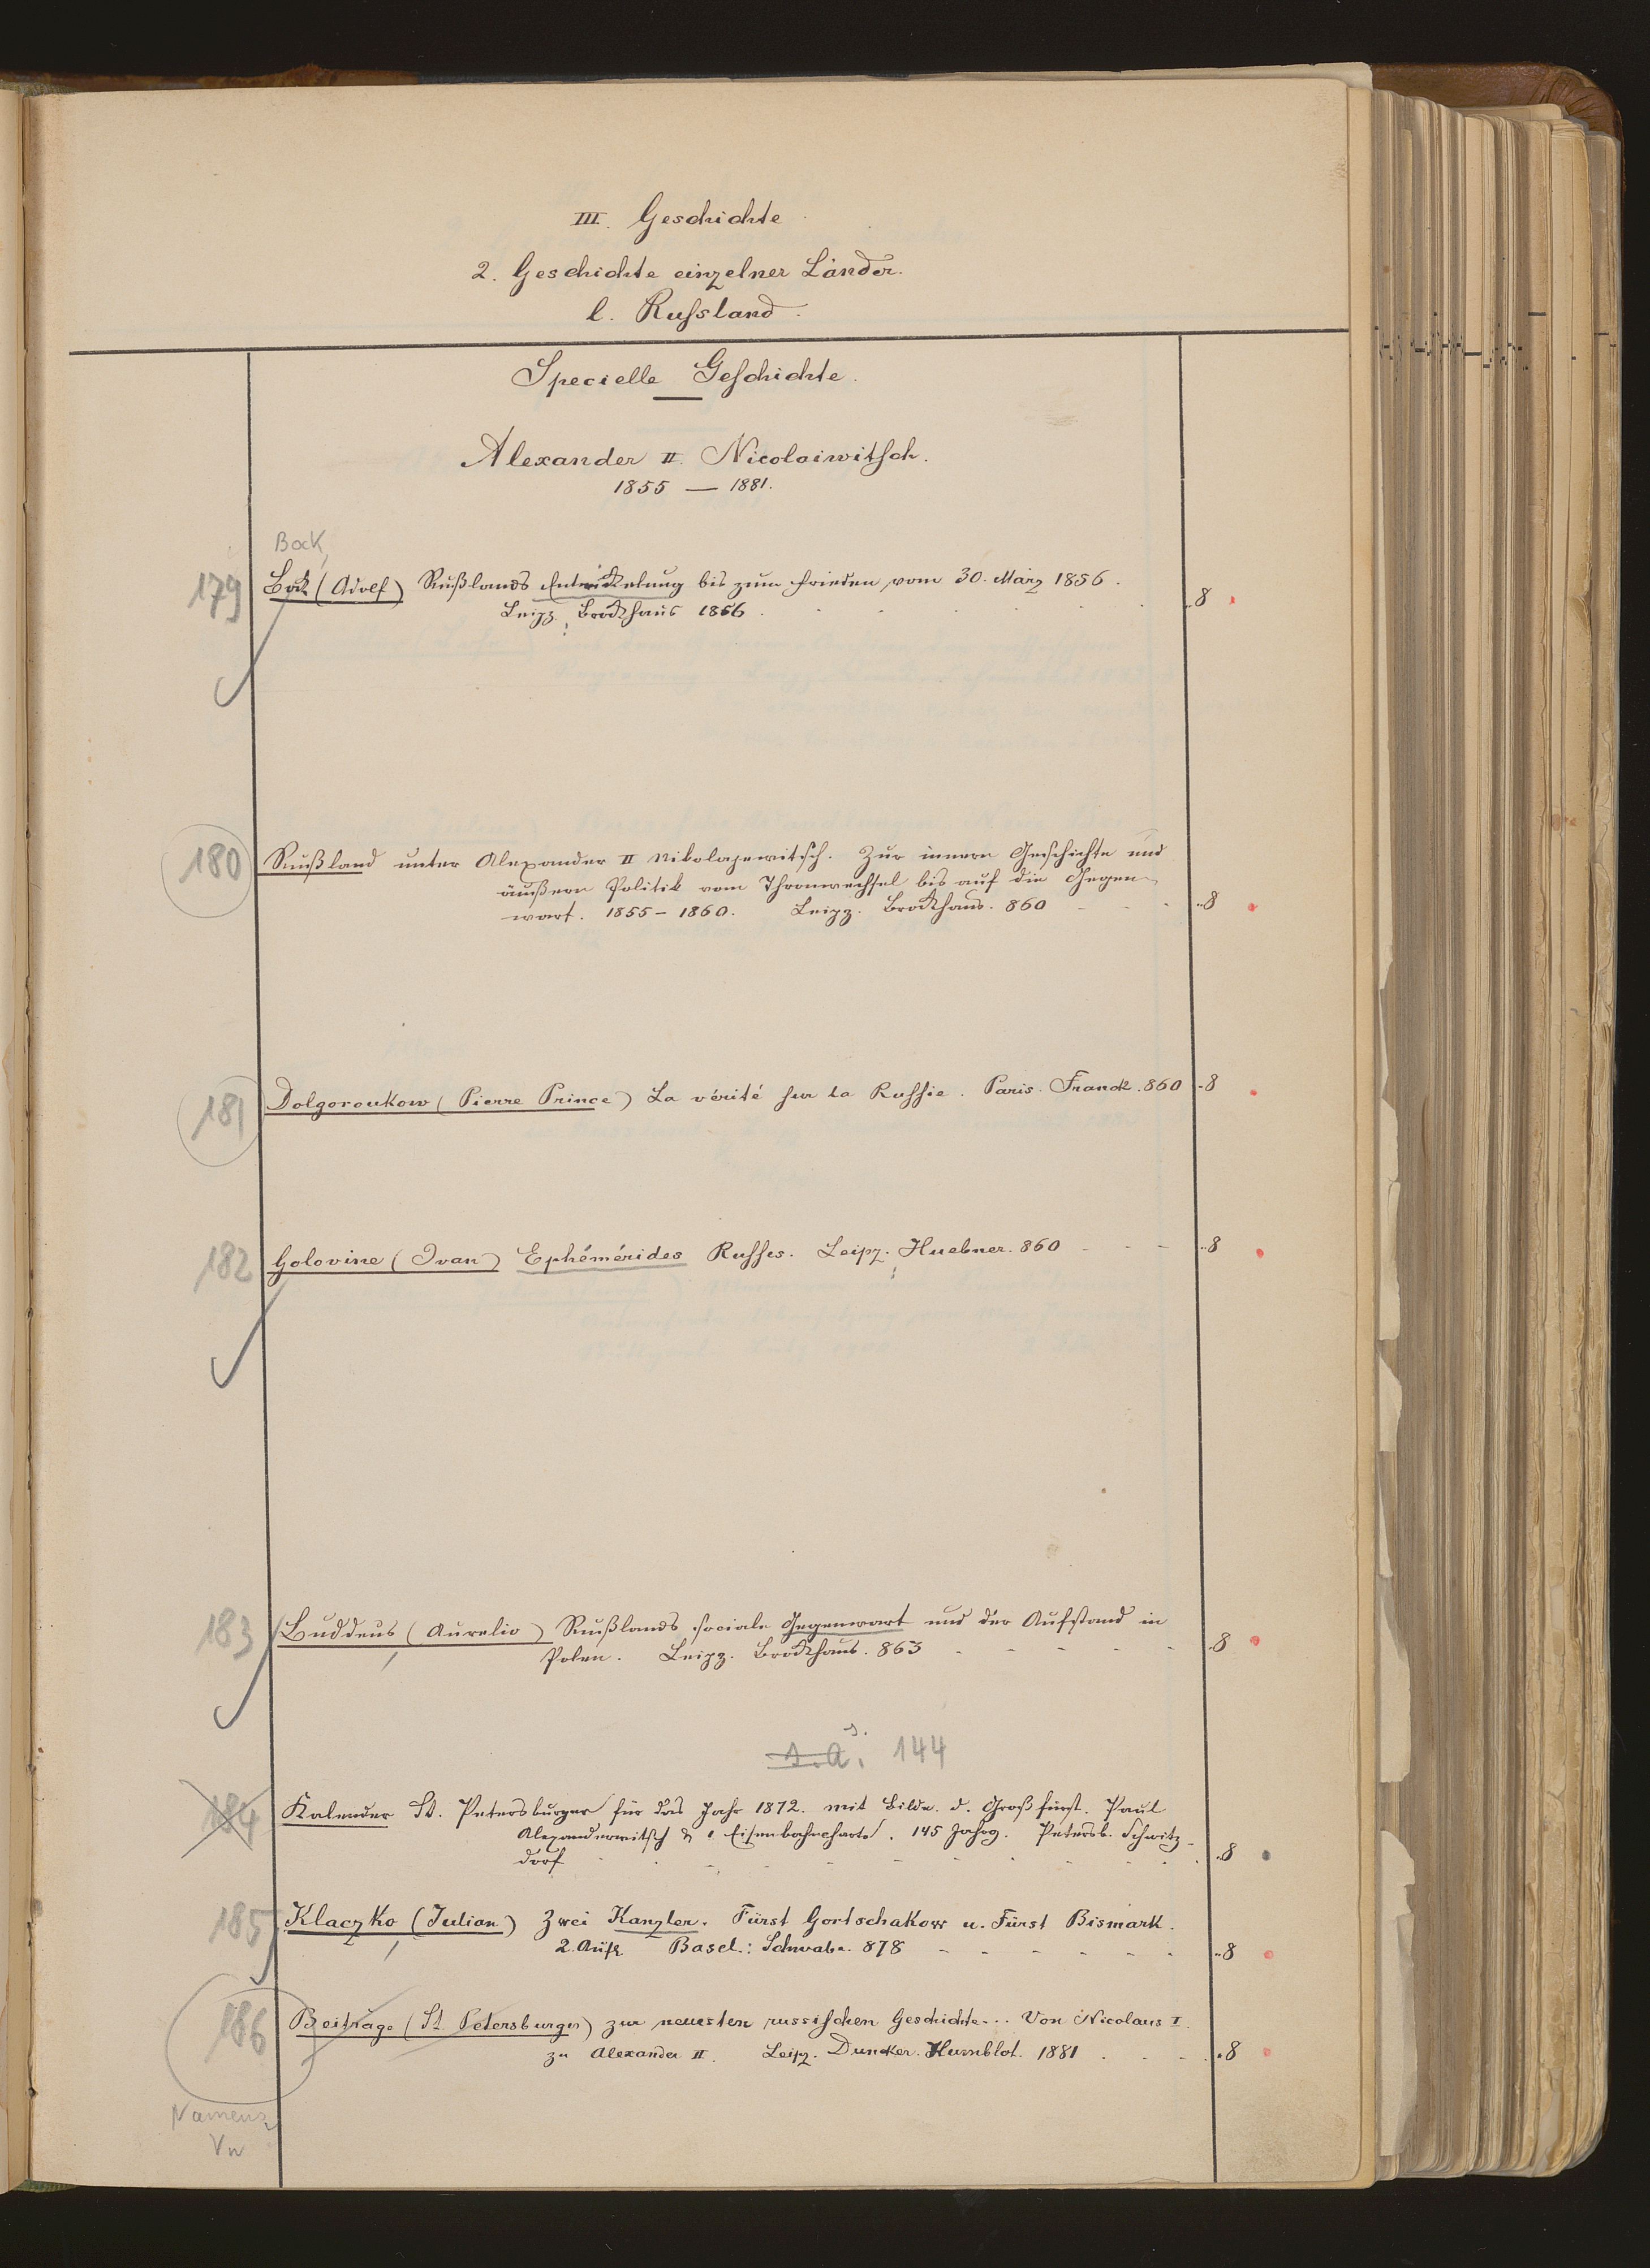 III. Geschichte
2. Geschichte einzelner Länder.
l. Russland.
Specielle Geschichte.
Alexander II. Nicolaiwitsch.
1855 — 1881.
Bock
179 Bock (Adolf) Rußlands Entwickelung bis zum Frieden vom 30. März 1856. 8
Leipz. Brockhaus 1856
180 Rußland unter Alexander II Nikolajewitsch. Zur innern Geschichte und
äußern Politik vom Thronwechsel bis auf die Gegen-
wart. 1855-1860. Leipz. Brockhaus. 860 8
181 Dolgoroukow (Pierre Prince) La vérité sur la Russie. Paris. Franck. 860 8
182 Golovine (Ivan) Ephémérides Russes. Leipz. Huebner. 860 8
183 Buddeus (Aurelio) Rußlands sociale Gegenwart und der Aufstand in
Polen. Leipz. Brockhaus. 863 8
s.a. s. 144
184 Kalender St. Petersburger für das Jahr 1872. mit Bildn. d. Großfürst. Paul
Alexanderwitsch & 1 Eisenbahncharte. 145 Jahrg. Petersb. Schmitz-
dorf 8
185 Klaczko (Julian) Zwei Kanzler. Fürst Gortschakow u. Fürst Bismark.
2. Aufl. Basel.: Schwabe. 878 8
186 Beiträge (St. Petersburger) zur neuesten russischen Geschichte... Von Nicolaus I.
zu Alexander II. Leipz. Duncker. Humblot. 1881 8